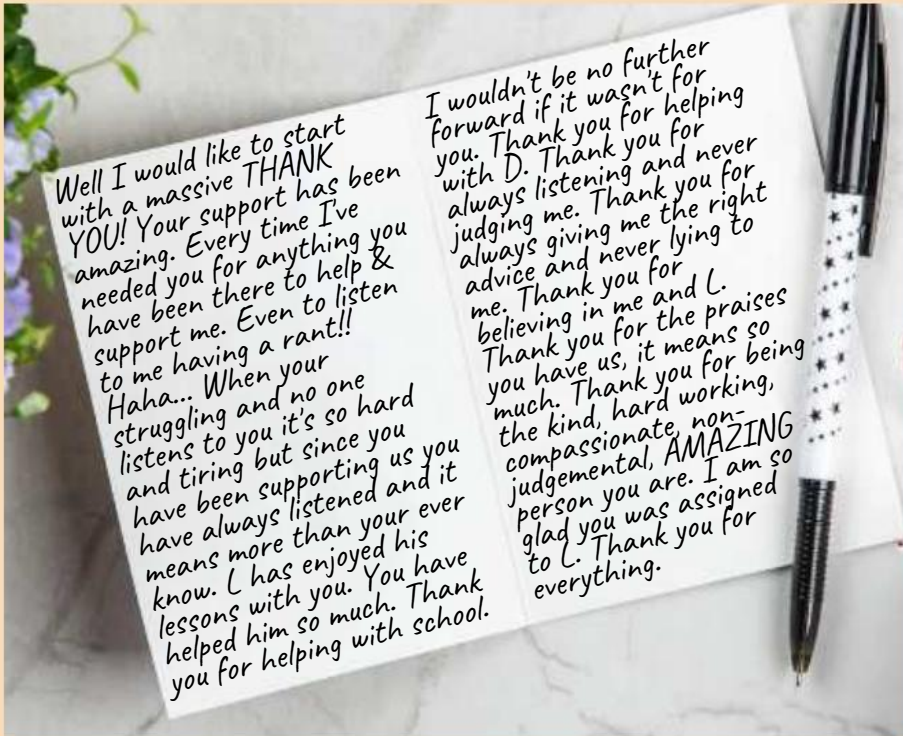 Well I would like to start
with a massive THANK
YOU! Your support has been
amazing. Every time I've
needed you for anything you
have been there to help &
support me. Even to listen
to me having a rant!!
Haha... When your
struggling and no one
listens to you it's so hard
and tiring but since you
have been supporting us you
have always listened and it
means more than your ever
know. L has enjoyed his
lessons with you. You have
helped him so much. Thank
you for helping with school.
I wouldn't be no further
forward if it wasn't for
you. Thank you for helping
with D. Thank you for
always listening and never
judging me. Thank you for
always giving me the right
advice and never lying to
me. Thank you for
believing in me and L.
Thank you for the praises
you have us, it means so
much. Thank you for being
the kind, hard working,
compassionate, non-
judgemental, AMAZING
person you are. I am so
glad you was assigned
to L. Thank you for
everything.